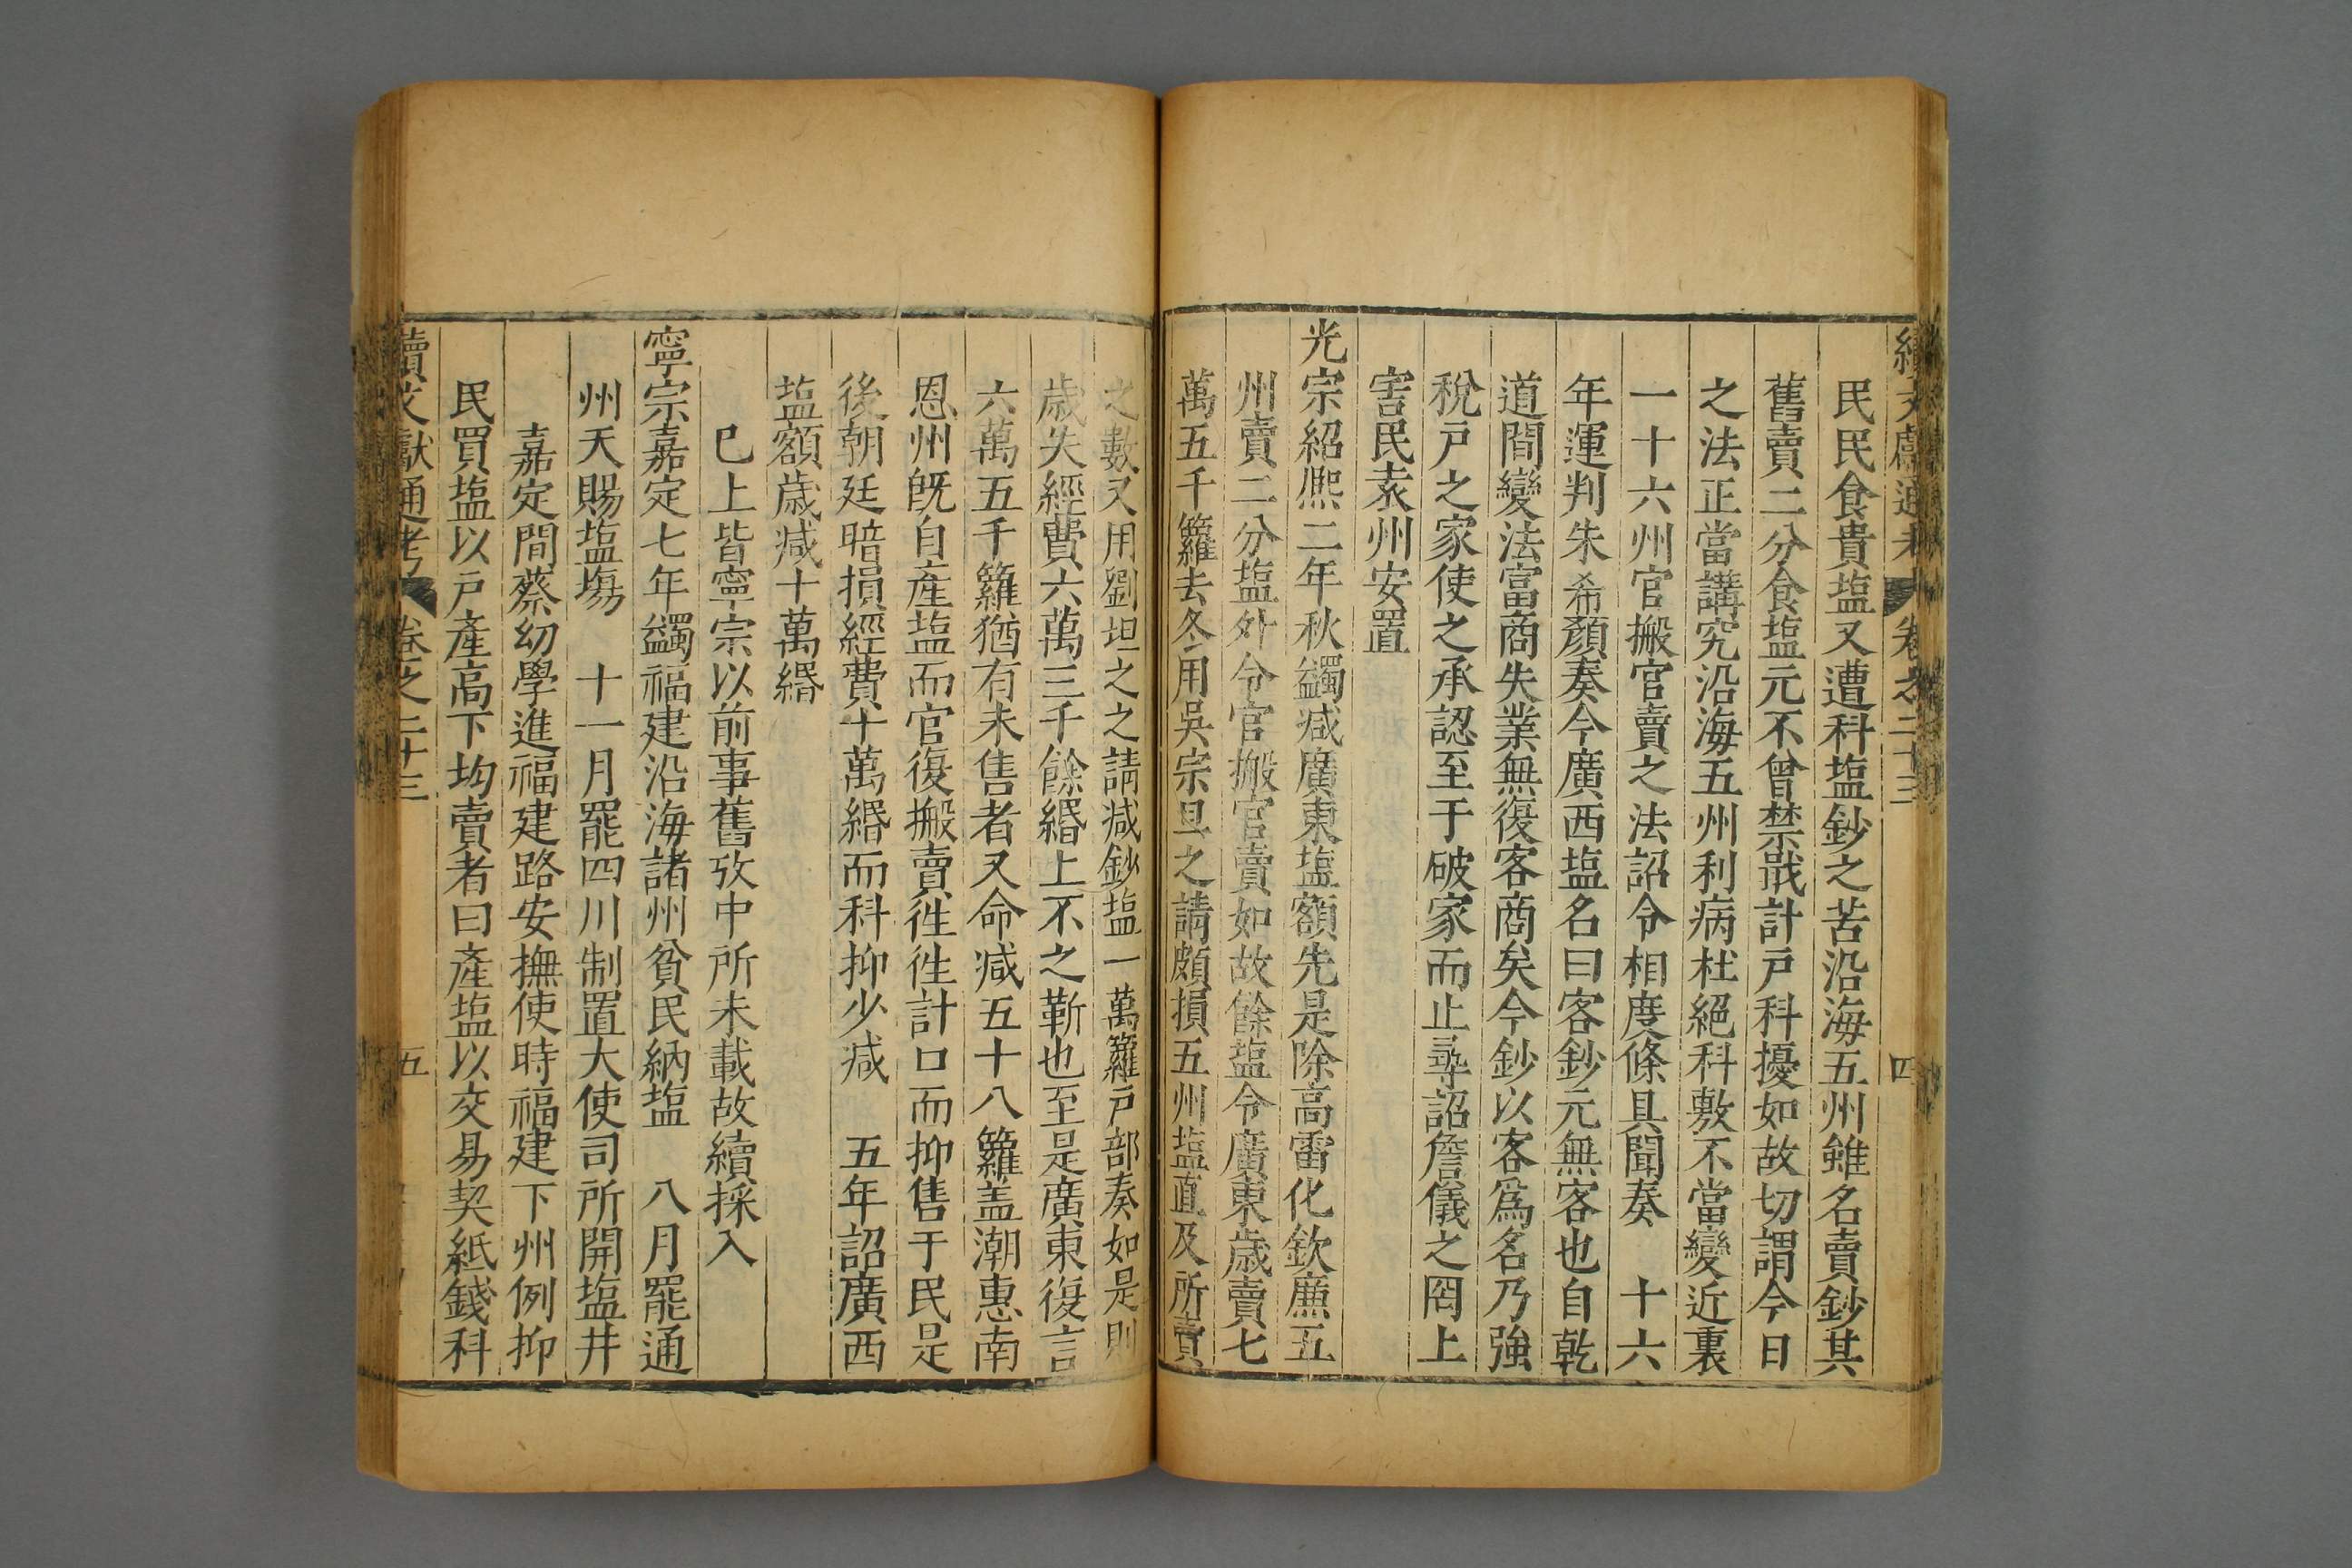 續文獻通考 卷之二十三 四
民民食貴塩又遭科塩鈔之苦沿海五州雖名賣鈔其
舊賣二分食塩元不曾禁戢計戸科擾如故切謂今日
之法正當講究沿海五州利病杜絕科敷不當變近裏
一十六州官搬官賣之法詔令相度條具聞奏 十六
年運判朱希顏奏今廣西塩名曰客鈔元無客也自乾
道間變法富商失業無復客商矣今鈔以客爲名乃強
稅戸之家使之承認至于破家而止尋詔詹儀之罔上
害民袁州安置
光宗紹熈二年秋蠲减廣東塩額先是除高雷化欽廉五
州賣二分塩外令官搬官賣如故餘塩令廣東歲賣七
萬五千籮去冬用吳宗旦之請頗損五州塩直及所賣
之數又用劉坦之之請减鈔塩一萬籮戸部奏如是則
歲失經費六萬三千餘緡上不之靳也至是廣東復言
六萬五千籮猶有未售者又命减五十八籮盖潮惠南
恩州旣自產塩而官復搬賣徃徃計口而抑售于民是
後朝廷暗損經費十萬緡而科抑少减 五年詔廣西
塩額歲减十萬緡
已上皆寧宗以前事舊攷中所未載故續採入
寧宗嘉定七年蠲福建沿海諸州貧民納塩 八月罷通
州天賜塩塲 十一月罷四川制置大使司所開塩井
嘉定間蔡幼學進福建路安撫使時福建下州例抑
民買塩以戸產高下均賣者曰產塩以交易契紙錢科
續文獻通考 卷之二十三 五